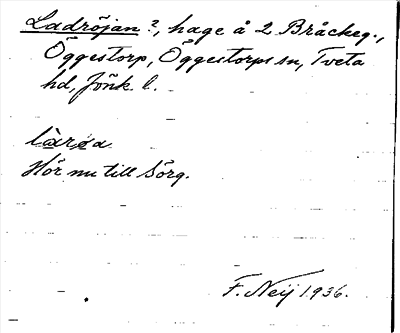 Ladröjan?, hage å 2 Bråckeg.,
Öggestorp, Öggestorps sn, Tveta
hd, Jönk l.
Hör nu till Sörg.
F. Neij 1936.